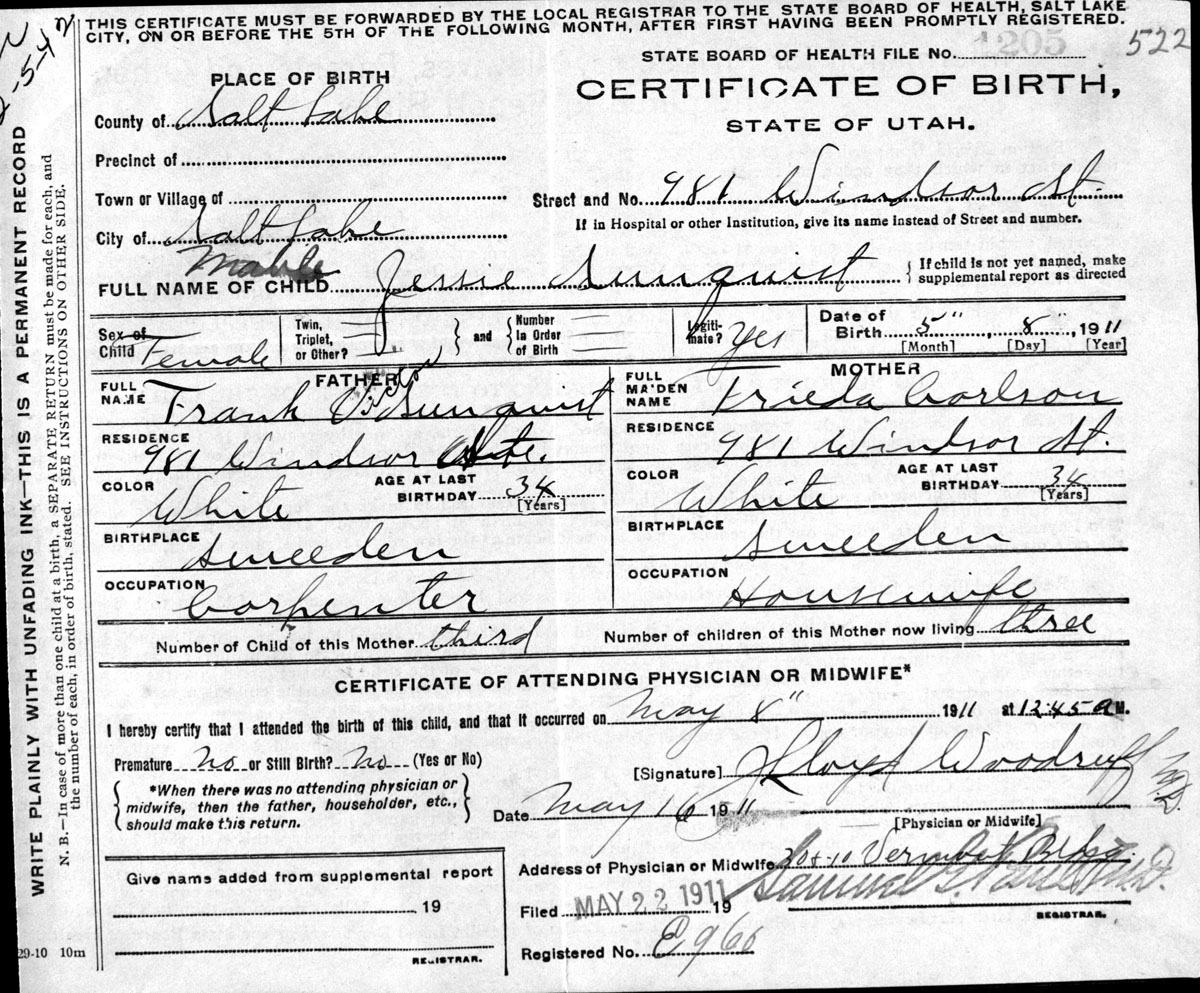 THIS CERTIFICATE MUST BE FORWARDED BY THE LOCAL REGISTRAR TO THE STATE BOARD OF HEALTH, SALT LAKE
CITY, ON OR BEFORE THE 5TH OF THE FOLLOWING MONTH, AFTER FIRST HAVING BEEN PROMPTLY REGISTERED.
1205 522
STATE BOARD OF HEALTH FILE No.
PLACE OF BIRTH
CERTIFICATE OF BIRTH,
STATE OF UTAH.
County of Salt Lake
Precinct of
Town or Village of
Street and No. 981 Windsor St.
City of Salt Lake
If in Hospital or other Institution, give its name instead of Street and number.
Mable
FULL NAME OF CHILD Jessie Sunquist
If child is not yet named, make
supplemental report as directed
Sex of Child Female
Twin, Triplet, or Other?
and
Number in Order of Birth
Legitimate? yes
Date of Birth 5" 8", 1911
[Month] [Day] [Year]
FATHER
FULL NAME Frank Sunquist
RESIDENCE
981 Windsor
COLOR White
AGE AT LAST BIRTHDAY 34
[Years]
BIRTHPLACE
Sweeden
OCCUPATION
Carpenter
MOTHER
FULL MAIDEN NAME Frieda Carlson
RESIDENCE 981 Windsor St.
COLOR White
AGE AT LAST BIRTHDAY 34
[Years]
BIRTHPLACE
Sweeden
OCCUPATION
Housewife
Number of Child of this Mother third
Number of children of this Mother now living three
CERTIFICATE OF ATTENDING PHYSICIAN OR MIDWIFE*
I hereby certify that I attended the birth of this child, and that it occurred on May 8" 1911 at 12:45 A M.
Premature No or Still Birth? No (Yes or No)
[Signature] Woodruff
*When there was no attending physician or
midwife, then the father, householder, etc.,
should make this return.
Date May 16 1911
[Physician or Midwife]
Address of Physician or Midwife
Filed MAY 22 1911 19
REGISTRAR.
Registered No. E966
Give name added from supplemental report
19
REGISTRAR.
29-10 10m
WRITE PLAINLY WITH UNFADING INK—THIS IS A PERMANENT RECORD
N. B.—In case of more than one child at a birth, a SEPARATE RETURN must be made for each, and
the number of each, in order of birth, stated. SEE INSTRUCTIONS ON OTHER SIDE.